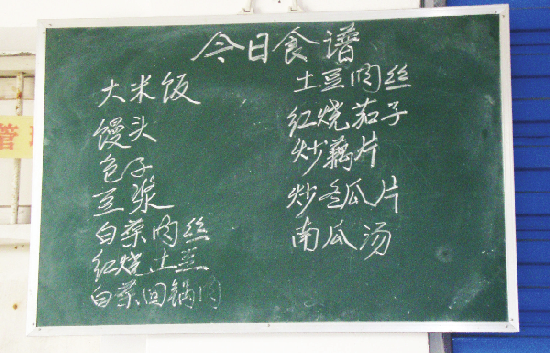 今日食谱
大米饭
馒头
包子
豆浆
白菜肉丝
红烧土豆
白菜回锅肉
土豆肉丝
红烧茄子
炒藕片
炒冬瓜片
南瓜汤
管理